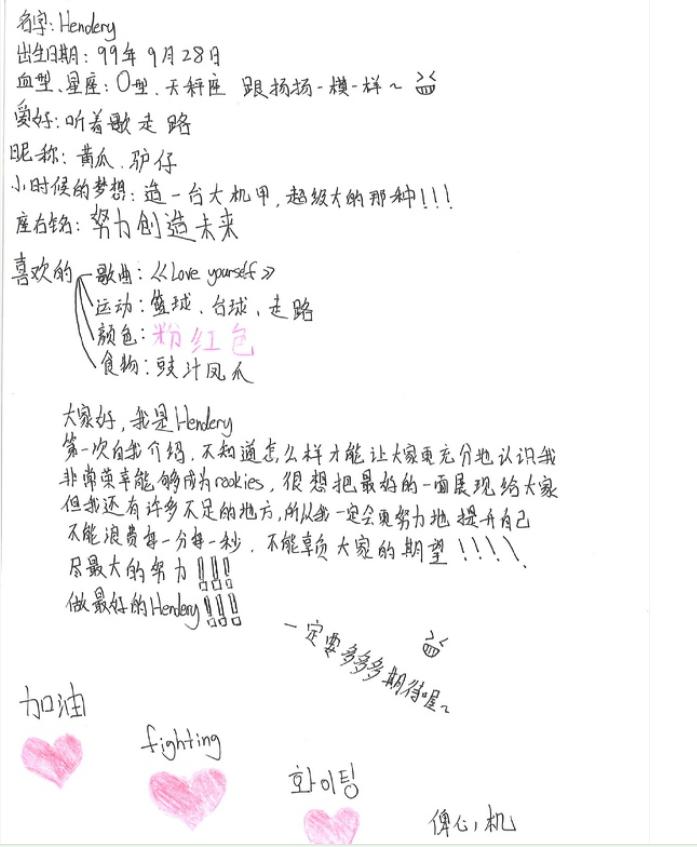 名字: Hendery
出生日期: 99年9月28日
血型、星座: O型、天秤座 跟扬扬一模一样~
爱好: 听着歌走路
昵称: 黄瓜、驴仔
小时候的梦想: 造一台大机甲, 超级大的那种!!!
座右铭: 努力创造未来
喜欢的 歌曲: 《Love yourself》
运动: 篮球、台球、走路
颜色: 粉红色
食物: 豉汁凤爪
大家好, 我是Hendery
第一次自我介绍, 不知道怎么样才能让大家更充分地认识我
非常荣幸能够成为rookies, 很想把最好的一面展现给大家
但我还有许多不足的地方, 所以我一定会更努力地提升自己
不能浪费每一分每一秒, 不能辜负大家的期望!!!!
尽最大的努力!!!
做最好的Hendery!!!
一定要多多多期待喔~
加油
fighting
화이팅
俾心,机